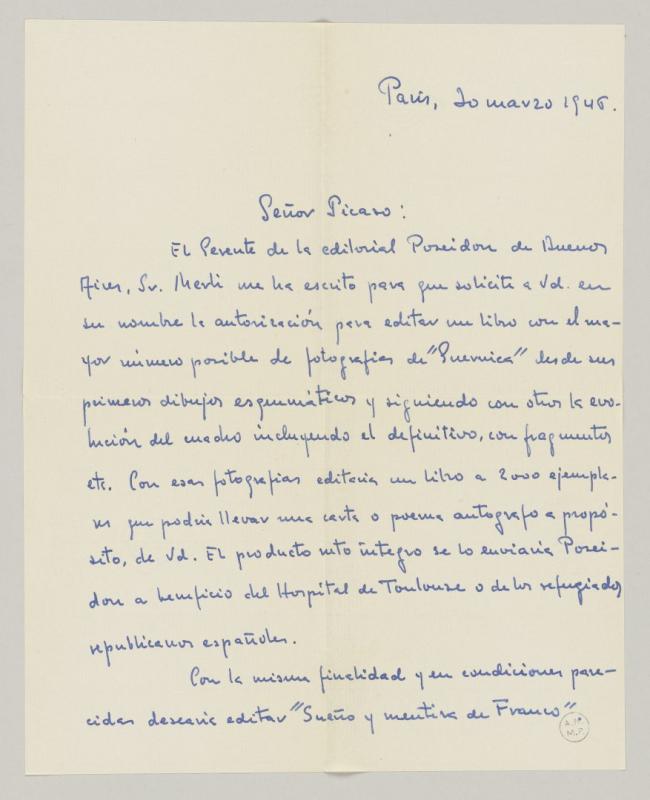 París, 20 marzo 1946.
Señor Picaso:
El Gerente de la editorial Poseidon de Buenos
Aires, Sr. Merli me ha escrito para que solicite a Vd. en
su nombre la autorización para editar un libro con el ma-
yor número posible de fotografias de "Guernica" desde sus
primeros dibujos esquemáticos y siguiendo con otros la evo-
lución del cuadro incluyendo el definitivo, con fragmentos
etc. Con esas fotografias editaria un libro a 2000 ejempla-
res que podria llevar una carta o poema autografo a propó-
sito, de Vd. El producto neto íntegro se lo enviaria Posei-
don a beneficio del Hospital de Toulouse o de los refugiados
republicanos españoles.
Con la misma finalidad y en condiciones pare-
cidas desearia editar "Sueño y mentira de Franco"
M.P.